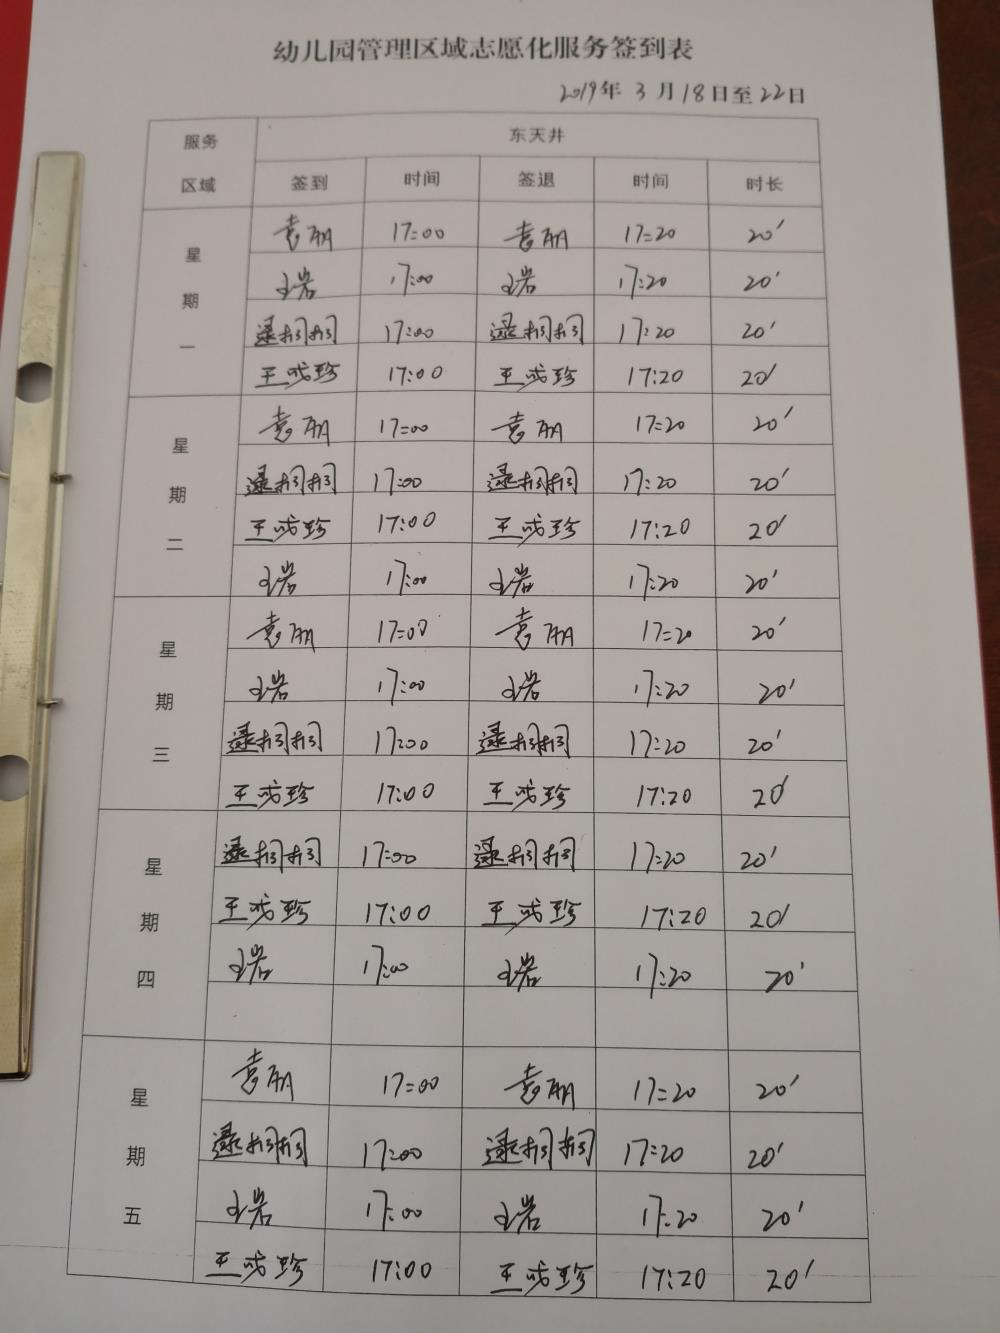 幼儿园管理区域志愿化服务签到表
2019年 3 月 18日至 22日
服务区域 东天井
签到 时间 签退 时间 时长
星期一
袁朋 17:00 袁朋 17:20 20'
王岩 17:00 王岩 17:20 20'
逯栩栩 17:00 逯栩栩 17:20 20'
王成珍 17:00 王成珍 17:20 20'
星期二
袁朋 17:00 袁朋 17:20 20'
逯栩栩 17:00 逯栩栩 17:20 20'
王成珍 17:00 王成珍 17:20 20'
王岩 17:00 王岩 17:20 20'
星期三
袁朋 17:00 袁朋 17:20 20'
王岩 17:00 王岩 17:20 20'
逯栩栩 17:00 逯栩栩 17:20 20'
王成珍 17:00 王成珍 17:20 20'
星期四
逯栩栩 17:00 逯栩栩 17:20 20'
王成珍 17:00 王成珍 17:20 20'
王岩 17:00 王岩 17:20 20'
星期五
袁朋 17:00 袁朋 17:20 20'
逯栩栩 17:00 逯栩栩 17:20 20'
王岩 17:00 王岩 17:20 20'
王成珍 17:00 王成珍 17:20 20'